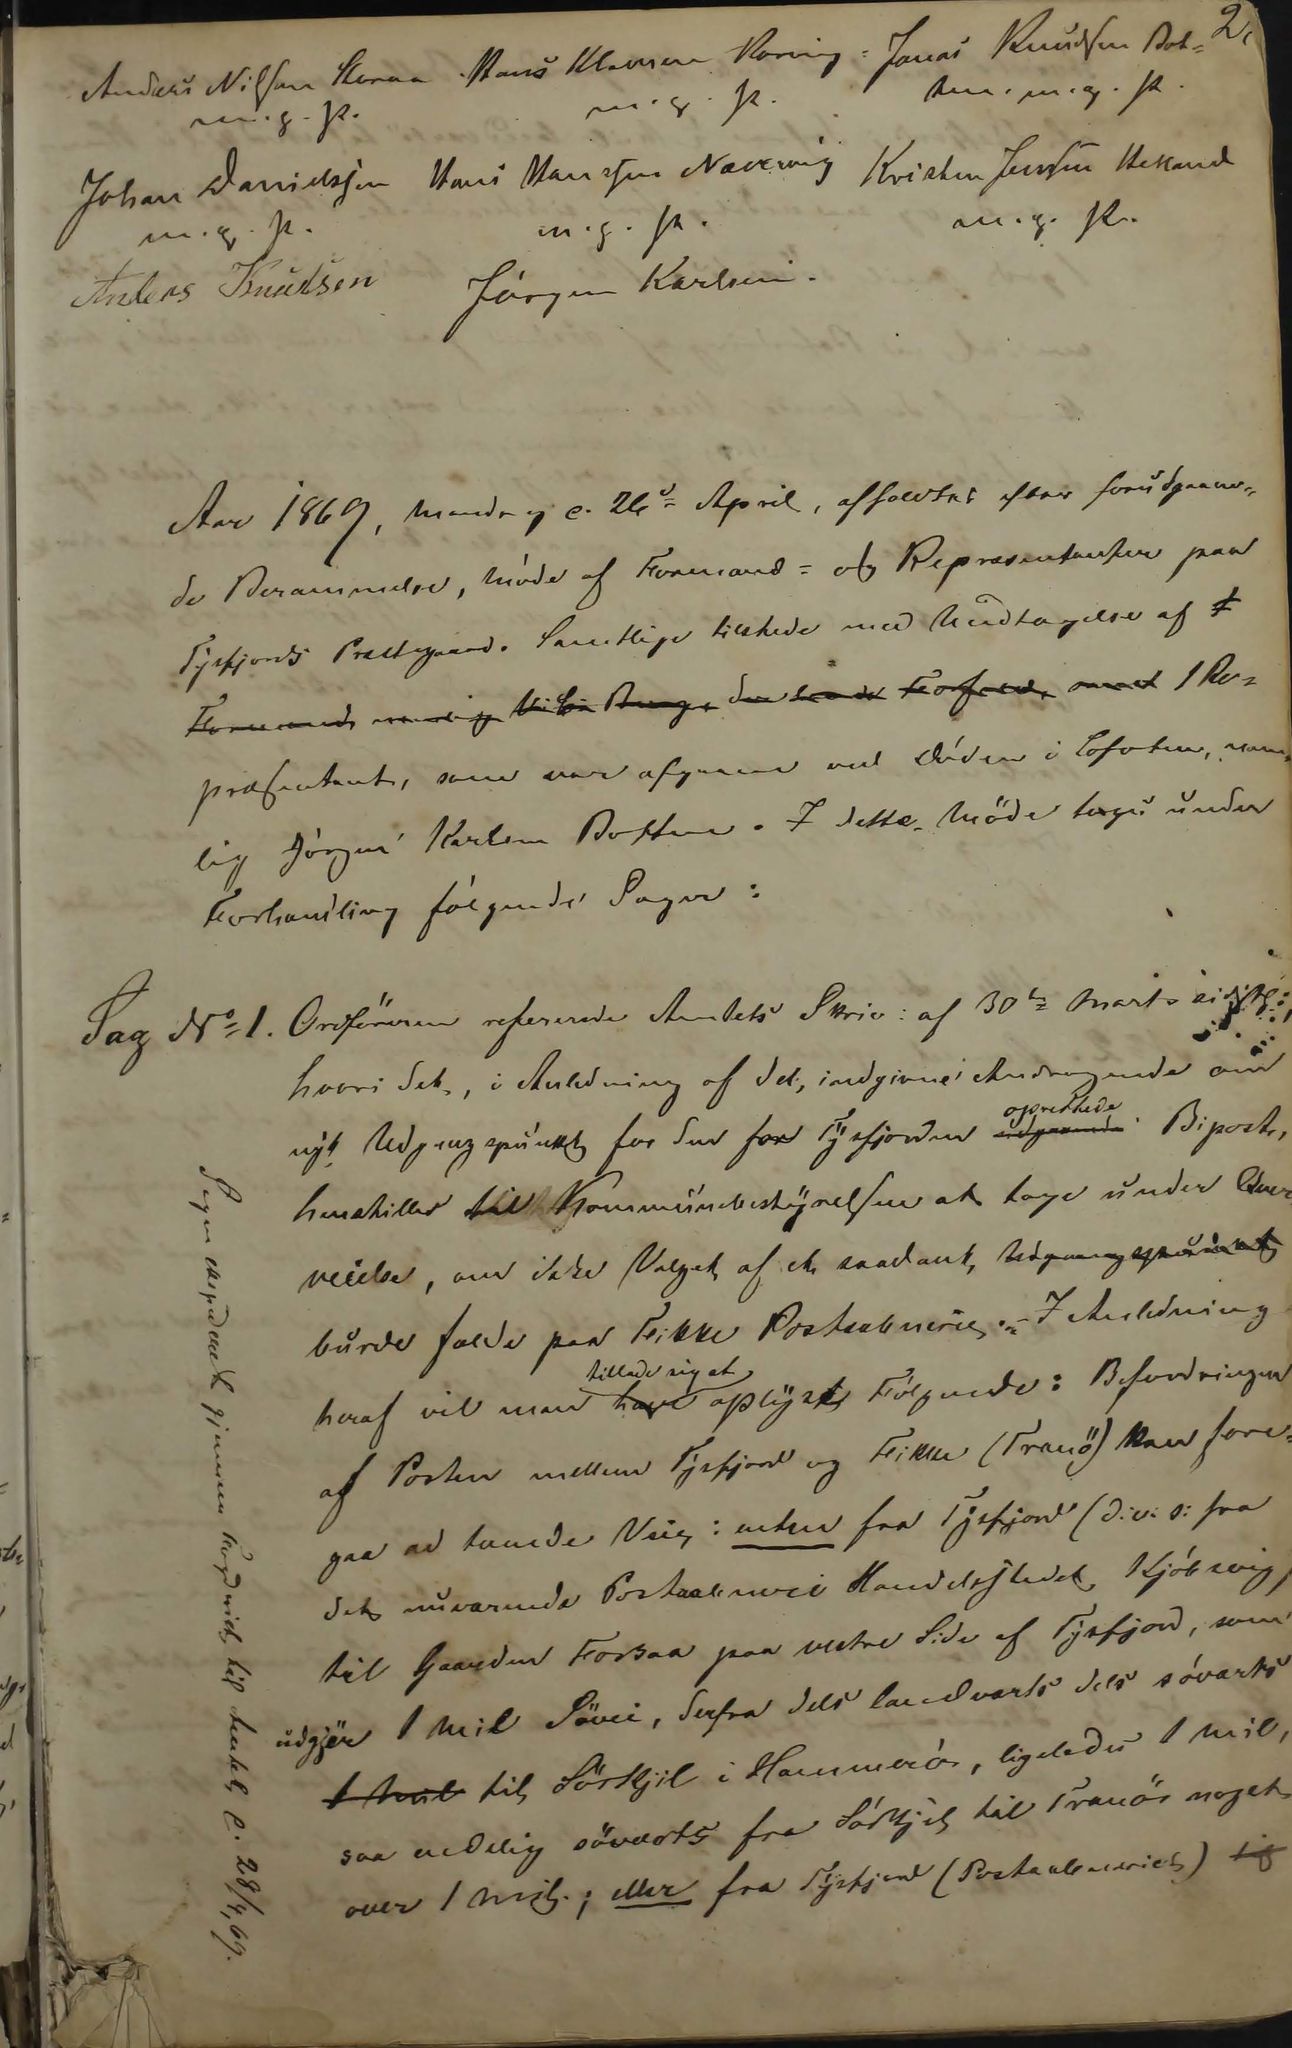 2,
Anders Nilsen Storaa Hans Klausen Koring = Jonas Knudsen Bot=
m. g. p. m. g. p. ten. m. g. p.
Johan Danielssen Hans Hanssen Nærevig Kristen Jenssen Helland
m. g. p. m. g. p. m. g. p.
Anders Knudsen Jörgen Karlsen.
Aar 1869, Mandag e. 26de April, afholdtes efter forudgaaen=
de Berammelse, Möde af Formand= og Repræsentanter paa
Tysfjords Præstegaard. Samtlige tilstede med Undtagelse af 1
Formand, nemlig den havde Forfald, samt 1 Re=
præsentant, som var afgaaen ved Döden i Lofoten, nem=
lig Jörgen Karlsen Botten. I dette Möde toges under
Forhandling fölgende Sager:
Sag No 1. Ordföreren refererede Amtets Skriv: af 30te Marts sidstl:,
hvori det, i Anledning af det, indgivne Andragende om
nyt Udgangspunkt for den for Tysfjorden udgaaende oprettede Bipost,
henstilles til Kommunebestyrelsen at tage under Over=
veielse, om ikke Valget af et saadant, Udgangspunkt
burde falde paa Fikke Postaabneri. - I Anledning
heraf vil man have tillade sig at oplyst Fölgende: Befordringen
af Posten mellem Tysfjord og Fikke (Tranö) kan fore=
gaa ad tvende Veie: enten fra Tysfjord (d: v: s: fra
det nuværende Postaabneri Handelsstedet Kjöbsvig)
til Gaarden Forsaa paa vestre Side af Tysfjord, som
udgjör 1 Mil Sövei, derfra dels landværts dels söværts
1 Mil til Sörkjil i Hammerö, ligeledes 1 Mil,
saa endelig söværts fra Sörkjil til Tranö noget
over 1 Mil.; eller fra Tysfjord (Postaabneriet) til
Sagen expederet gjennem Fogderiet til Amtet d. 28/4 69.